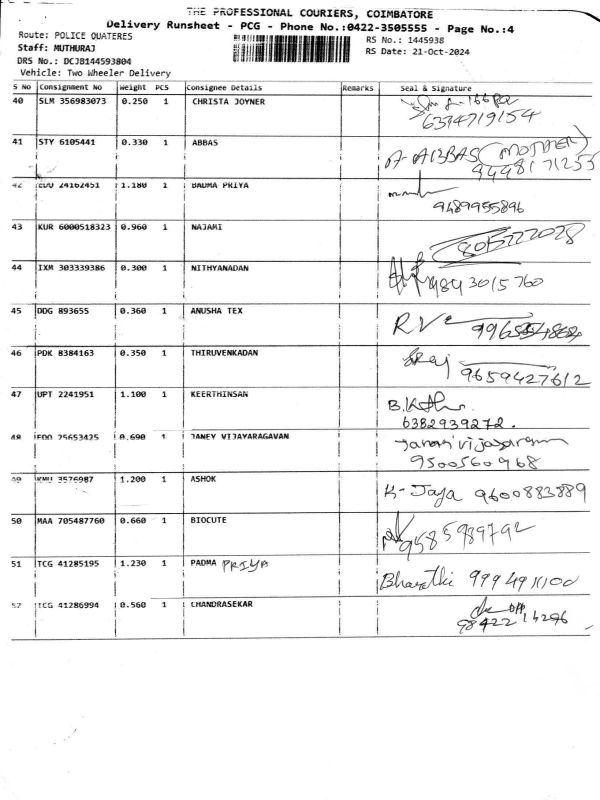 THE PROFESSIONAL COURIERS, COIMBATORE
Delivery Runsheet - PCG - Phone No.:0422-3505555 - Page No.:4
Route: POLICE QUATERES RS No.: 1445938
Staff: MUTHURAJ RS Date: 21-Oct-2024
DRS No.: DCJB144593804
Vehicle: Two Wheeler Delivery
S No Consignment No Weight PCS Consignee Details Remarks Seal & Signature
40 SLM 356983073 0.250 1 CHRISTA JOYNER
6374719154
41 STY 6105441 0.330 1 ABBAS A-ABBAS (MOTHER)
9448171255
42 EDO 24162451 1.180 1 BADMA PRIYA
9489955896
43 KUR 6000518323 0.960 1 NAJAMI 8015222028
44 IXM 303339386 0.300 1 NITHYANADAN
9843015760
45 DDG 893655 0.360 1 ANUSHA TEX
46 PDK 8384163 0.350 1 THIRUVENKADAN
9659427612
47 UPT 2241951 1.100 1 KEERTHINSAN
6382939272.
48 EDO 25653425 0.690 1 JANEY VIJAYARAGAVAN
9500560968
49 KMU 3576987 1.200 1 ASHOK K-Jaya 9600883889
50 MAA 705487760 0.660 1 BIOCUTE
9585989792
51 TCG 41285195 1.230 1 PADMA PRIYA
Bharathi
52 TCG 41286994 0.560 1 CHANDRASEKAR
98422 14296